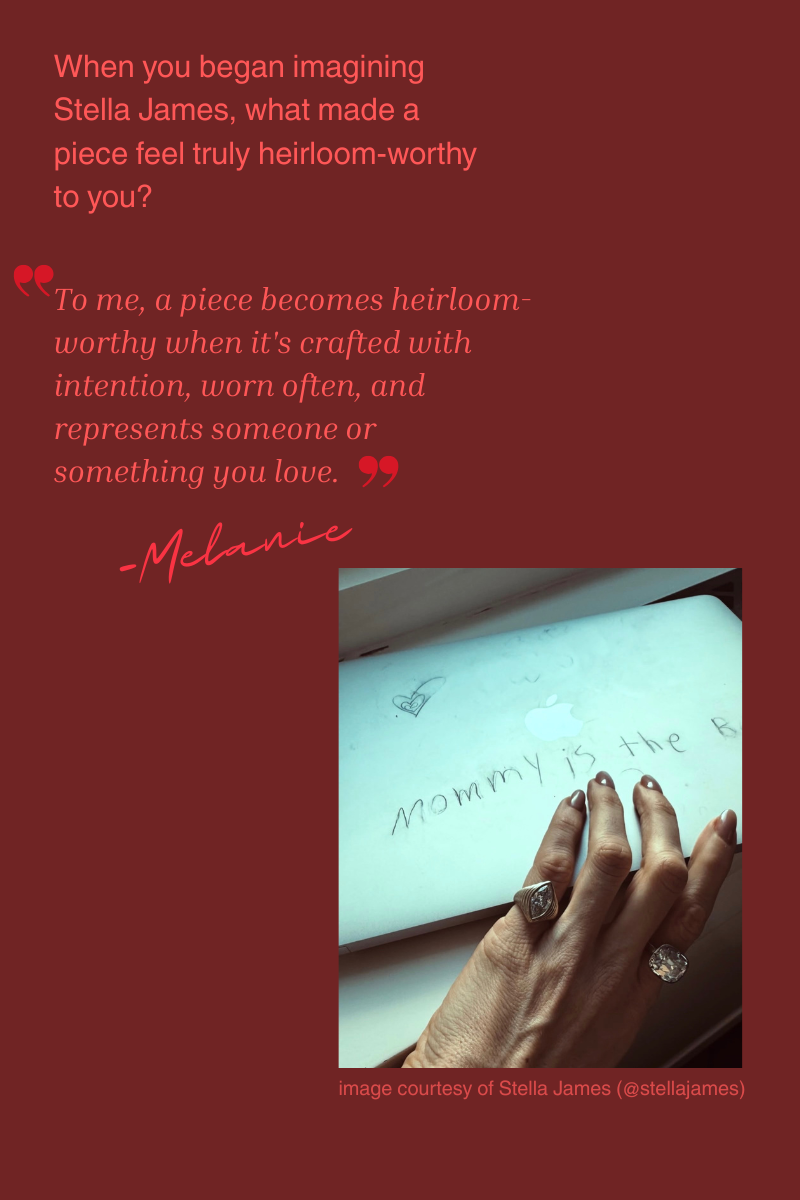 When you began imagining
Stella James, what made a
piece feel truly heirloom-worthy
to you?
❞To me, a piece becomes heirloom-
worthy when it's crafted with
intention, worn often, and
represents someone or
something you love. ❞
-Melanie
Mommy is the B
image courtesy of Stella James (@stellajames)